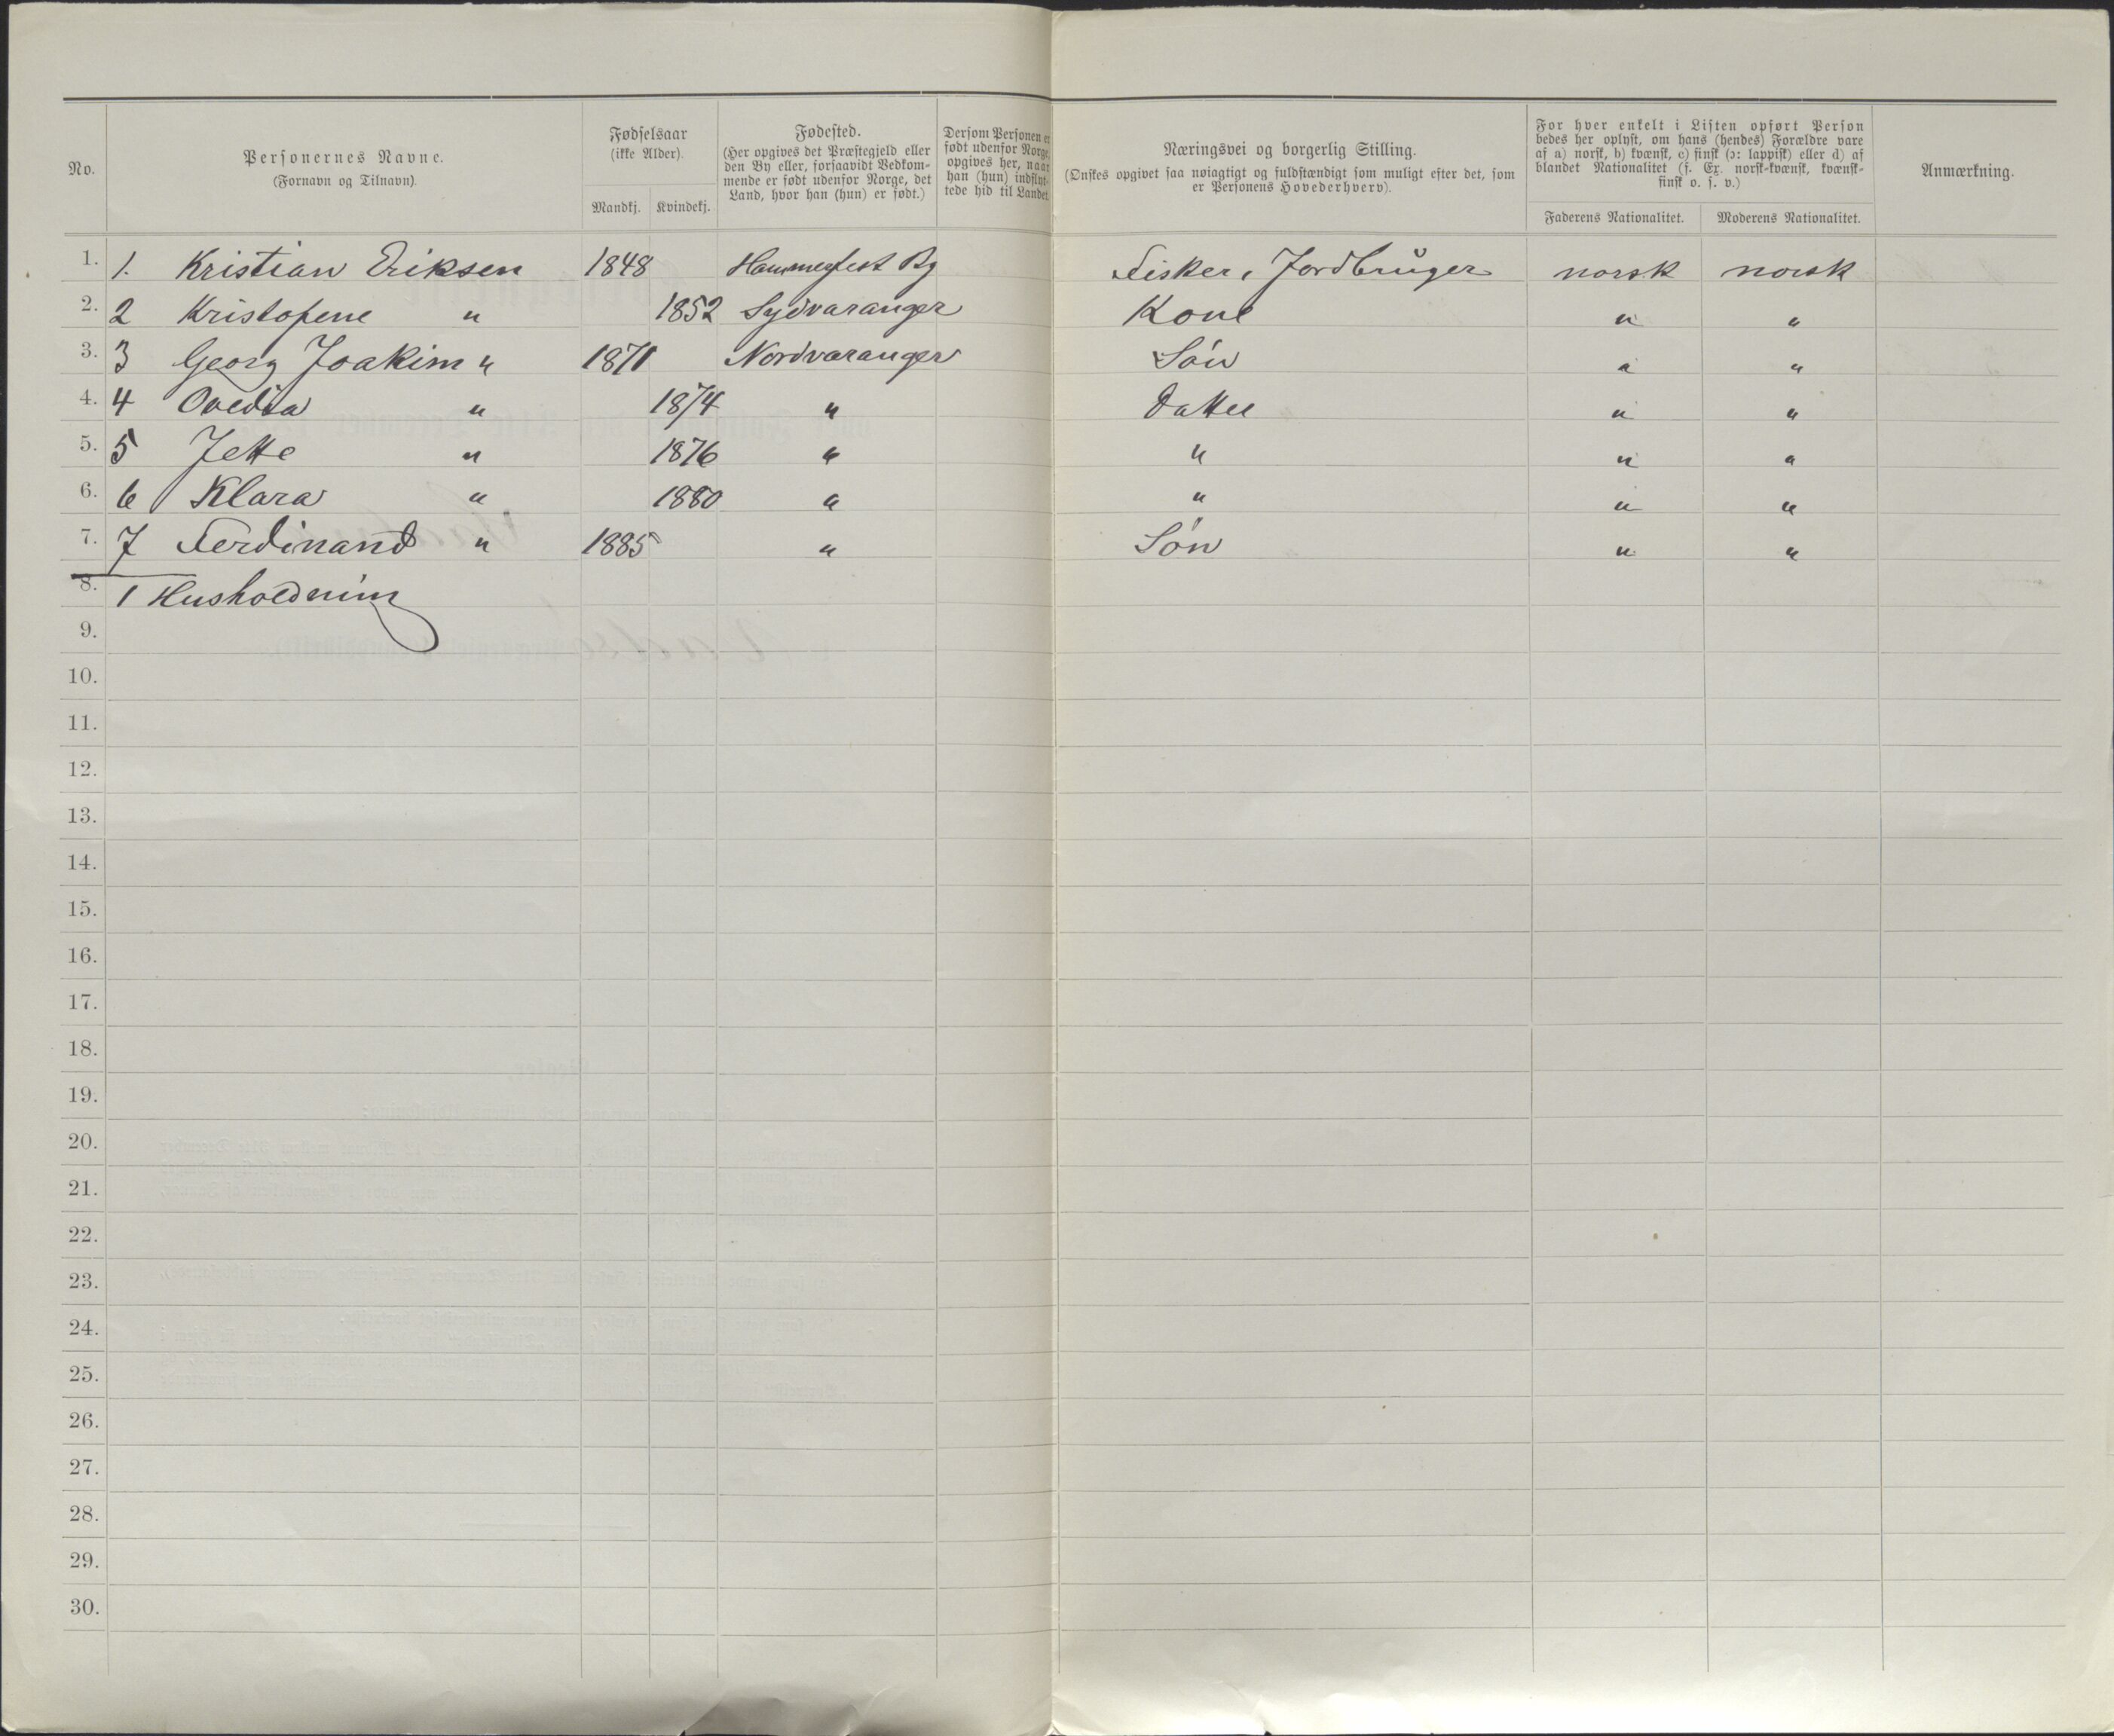 No.
Personernes Navne.
(Fornavn og Tilnavn).
Fødselsaar
(ikke Alder).
Mandkj. Kvindekj.
Fødested.
(Her opgives det Præstegjeld eller
den By eller, forsaavidt Vedkom-
mende er født udenfor Norge, det
Land, hvor han (hun) er født.)
Dersom Personen er
født udenfor Norge,
opgives her, naar
han (hun) indflyt-
tede hid til Landet.
Næringsvei og borgerlig Stilling.
(Ønskes opgivet saa nøiagtigt og fuldstændigt som muligt efter det, som
er Personens Hovederhverv).
For hver enkelt i Listen opført Person
bedes her oplyst, om hans (hendes) Forældre vare
af a) norsk, b) kvænsk, c) finsk (ɔ: lappisk) eller d) af
blandet Nationalitet (f. Ex. norsk-kvænsk, kvænsk-
finsk o. s. v.)
Faderens Nationalitet. Moderens Nationalitet.
Anmærkning.
1. 1. Kristian Eriksen 1848 Hammerfest By Fisker, Jordbruger norsk norsk
2. 2 Kristofene " 1852 Sydvaranger Kone " "
3. 3 Georg Joakim " 1871 Nordvaranger Søn " "
4. 4 " 1874 " Datter " "
5. 5 Jette " 1876 " " " "
6. 6 Klara " 1880 " " " "
7. 7 Ferdinand " 1885 " Søn " "
8. 1 Husholdning
9.
10.
11.
12.
13.
14.
15.
16.
17.
18.
19.
20.
21.
22.
23.
24.
25.
26.
27.
28.
29.
30.